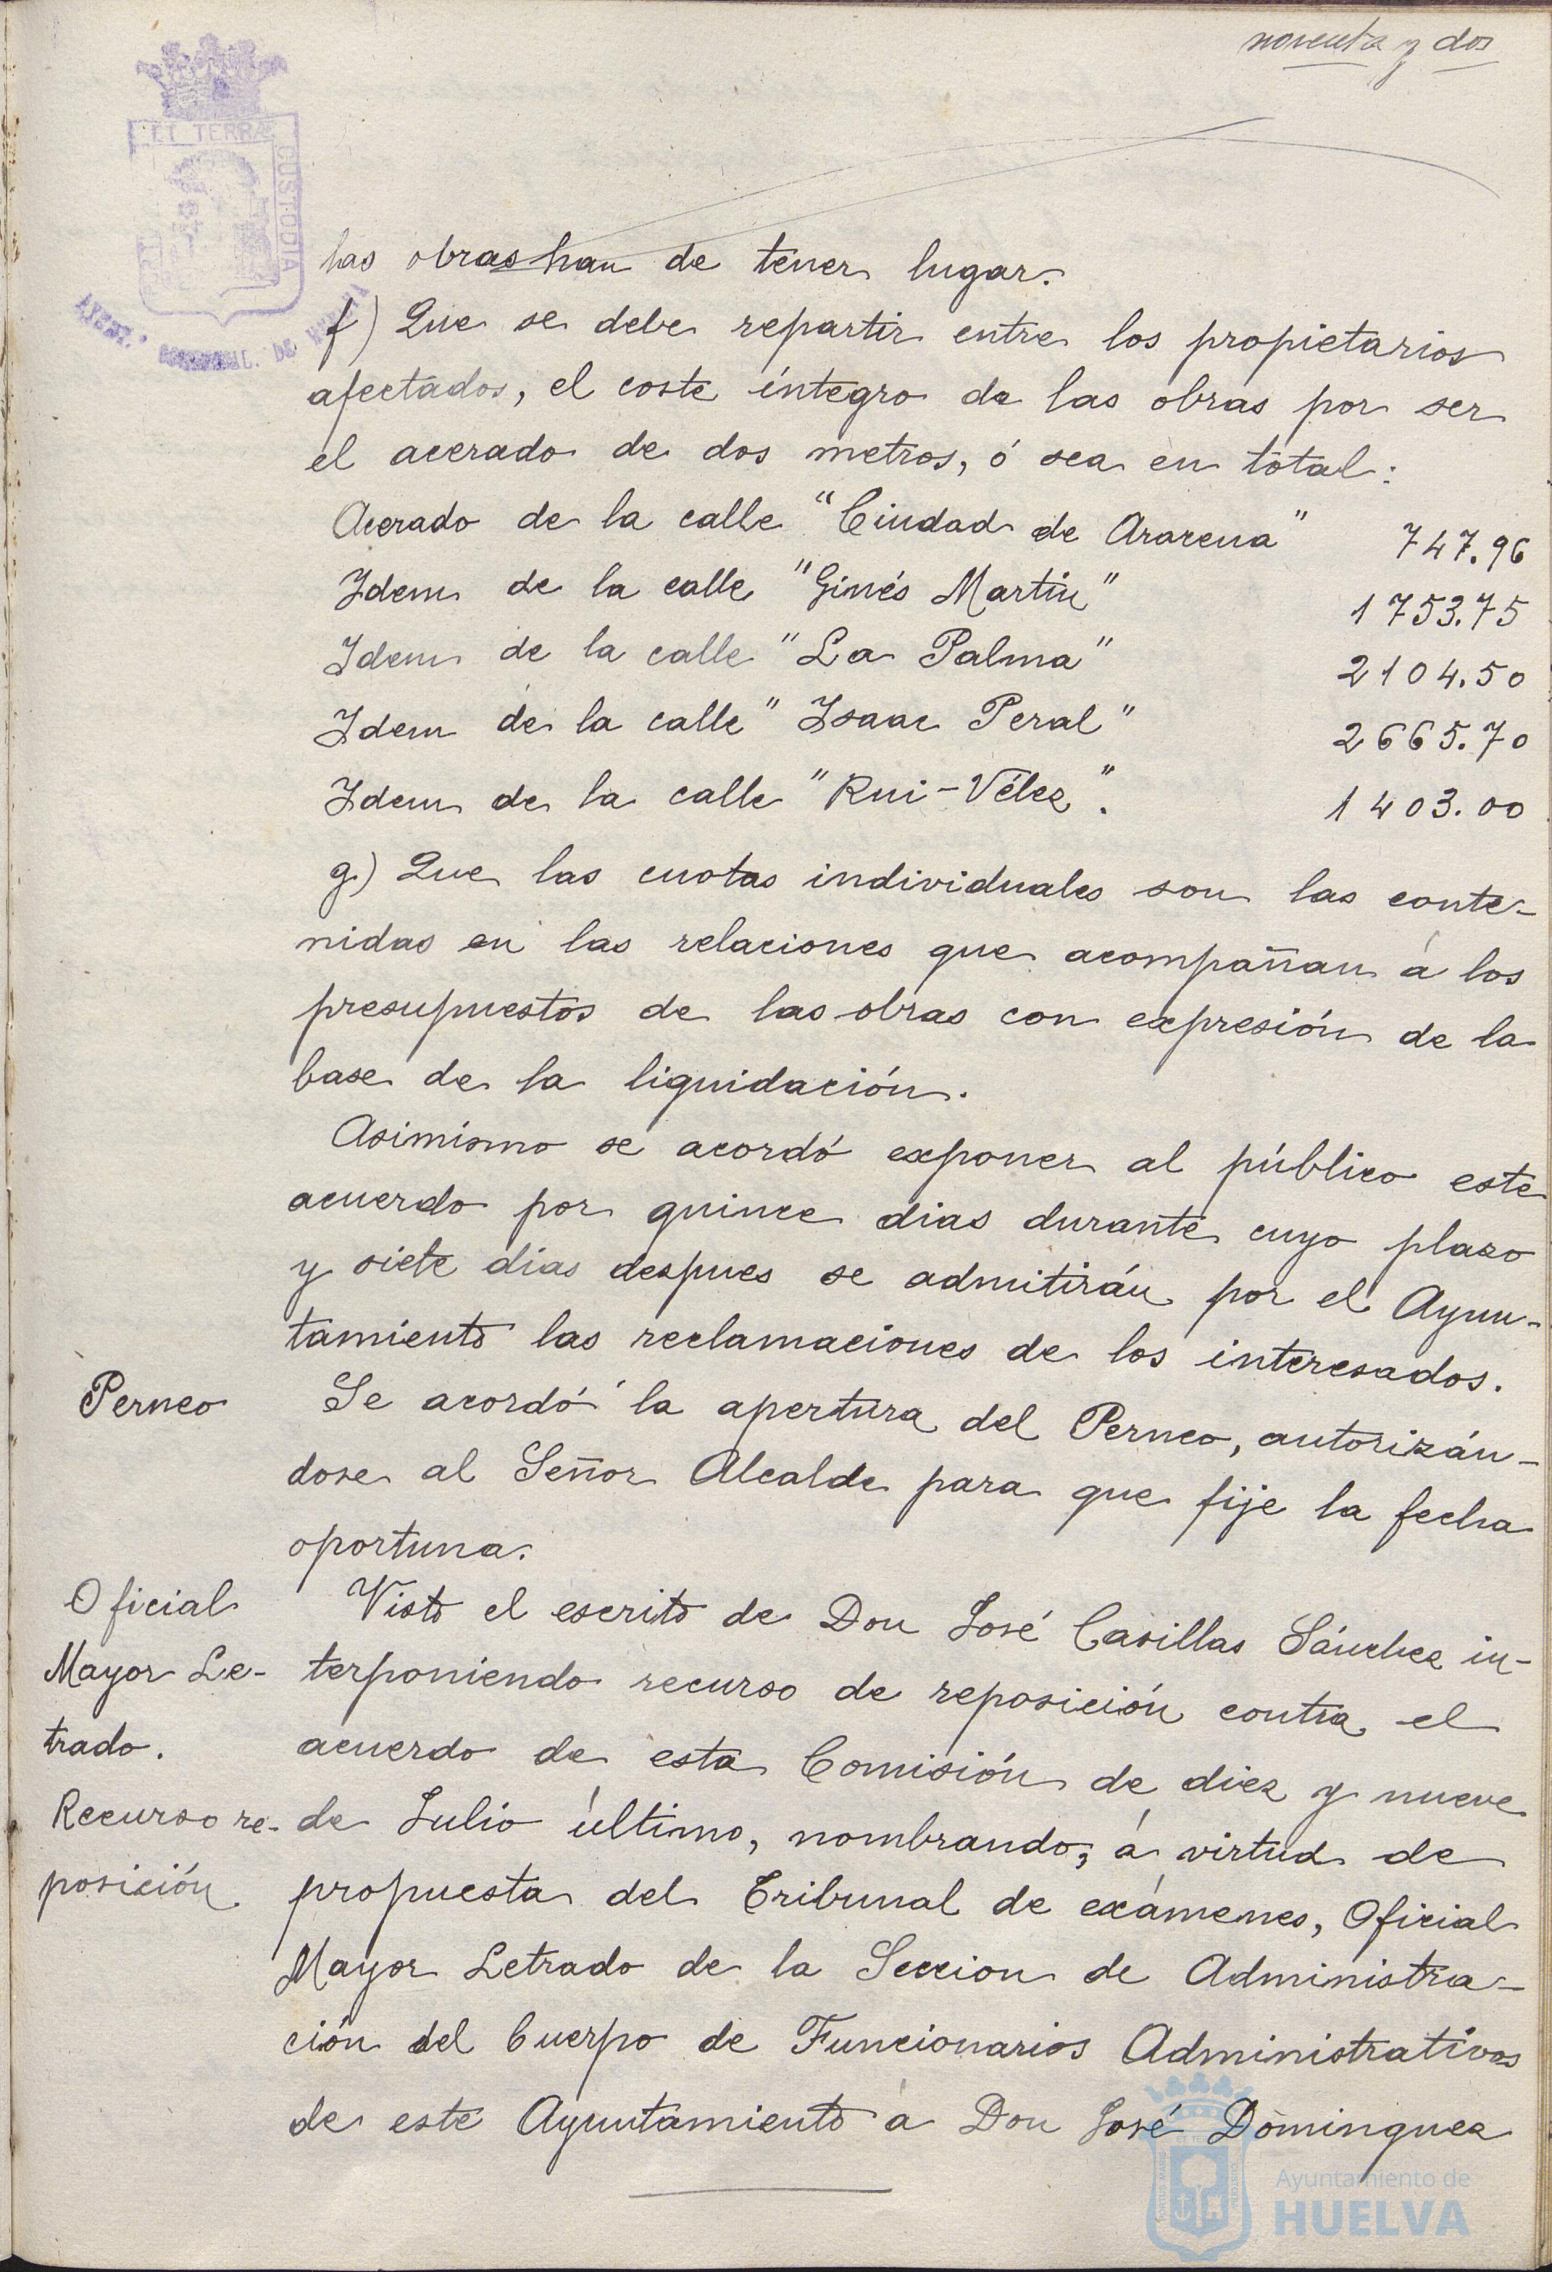 noventa y dos
ET TERRAE CUSTODIA
AYUNT.º DE HUELVA
has obras han de tener lugar.
f) Que se debe repartir entre los propietarios
afectados, el coste íntegro de las obras por ser
el acerado de dos metros, ó sea en total:
Acerado de la calle "Ciudad de Aracena" 747.96
Idem de la calle "Ginés Martín" 1753.75
Idem de la calle "La Palma" 2104.50
Idem de la calle "Isaac Peral" 2665.70
Idem de la calle "Rui-Vélez". 1403.00
g) Que las cuotas individuales son las conte-
nidas en las relaciones que acompañan á los
presupuestos de las obras con expresión de la
base de la liquidación.
Asimismo se acordó exponer al público este
acuerdo por quince dias durante cuyo plazo
y siete dias despues se admitirán por el Ayun-
tamiento las reclamaciones de los interesados.
Perneo
Se acordó la apertura del Perneo, autorizán-
dose al Señor Alcalde para que fije la fecha
oportuna.
Oficial
Mayor Le-
trado.
Recurso re-
posición
Visto el escrito de Don José Casillas Sánchez in-
terponiendo recurso de reposición contra el
acuerdo de esta Comisión de diez y nueve
de Julio último, nombrando, á virtud de
propuesta del Tribunal de exámenes, Oficial
Mayor Letrado de la Seccion de Administra-
ción del Cuerpo de Funcionarios Administrativos
de este Ayuntamiento á Don José Dominguez
Ayuntamiento de
HUELVA